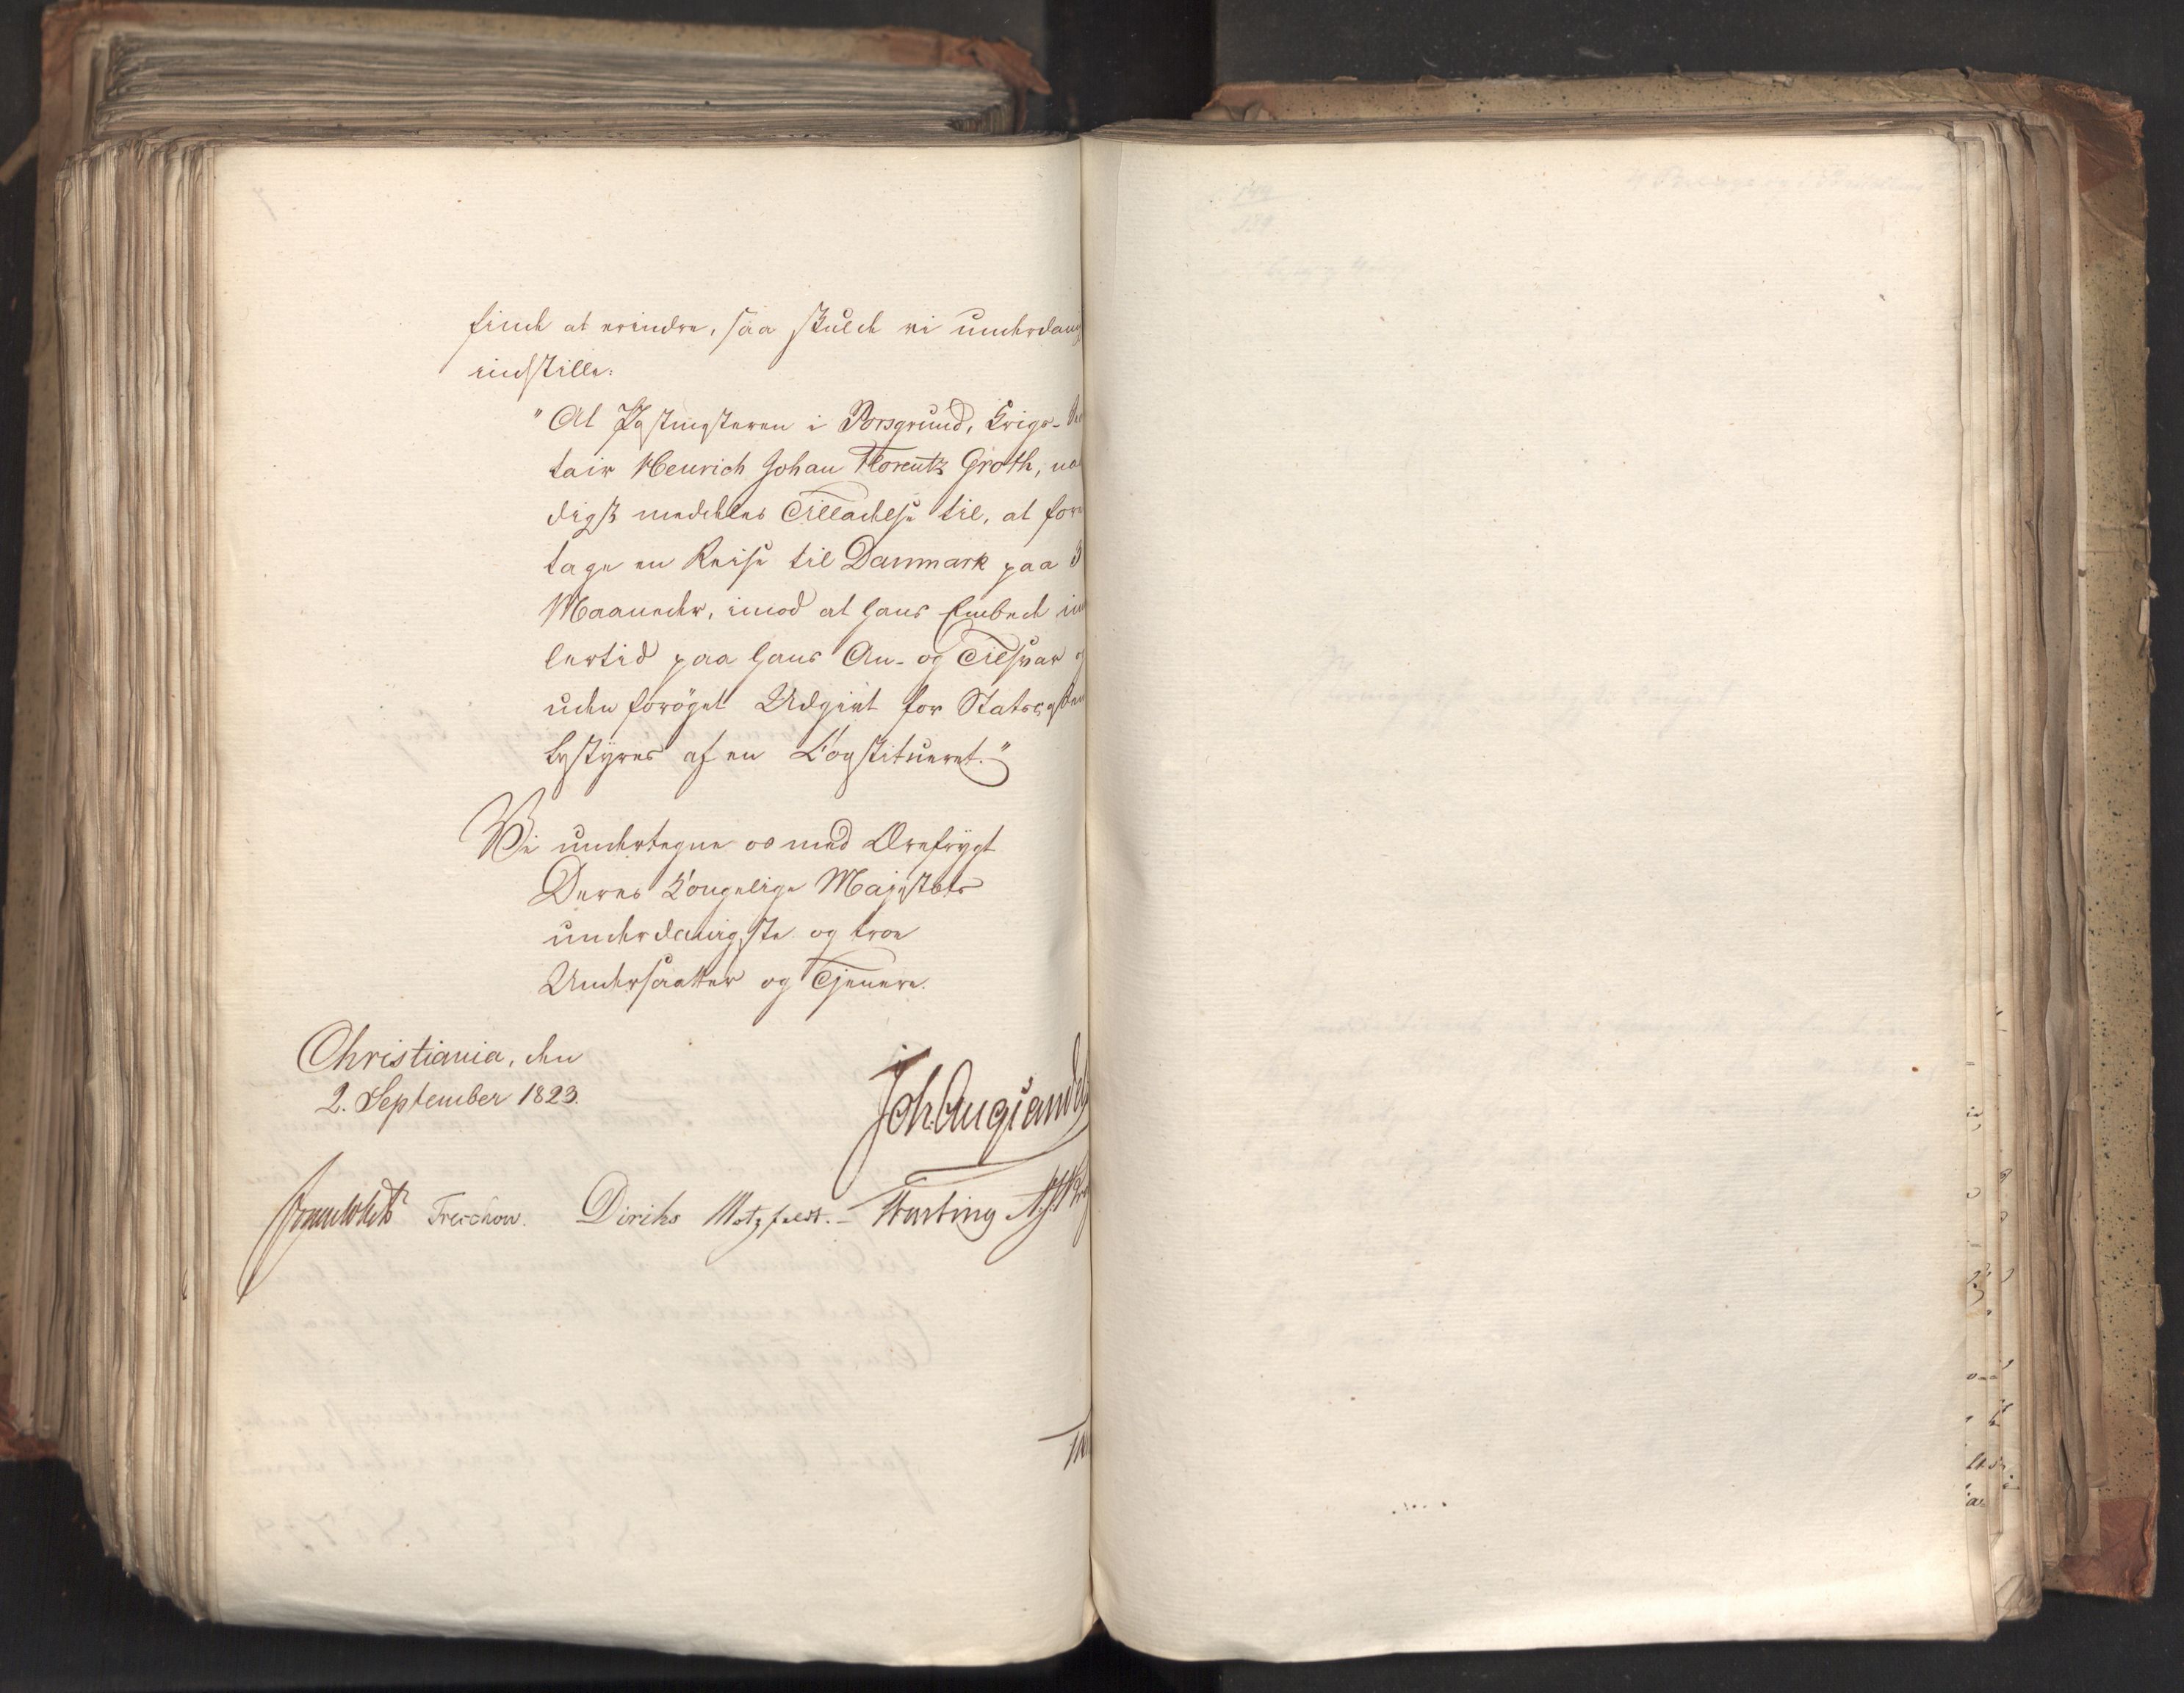 finde at erindre, saa skulde vi underdanig
indstille:
"At Postmesteren i Porsgrund, Krigs-
tair Henrich Johan Florentz Groth, naa
digst meddeles Tilladelse til, at fore
tage en Reise til Danmark paa 3
Maaneder, imod at hans Embede im
lertid paa hans An- og Tilsvar og
uden forøget Udgivt for Statscassen
bestyres af en Constitueret."
Vi undertegne os med Ærefrygt
Deres Kongelige Majestæts
underdanigste og troe
Undersaatter og Tjenere.
Christiania, den
2. September 1823.
Joh. Aug Sand
Sommerhielm Treschow. Diriks Motzfeldt. Fasting